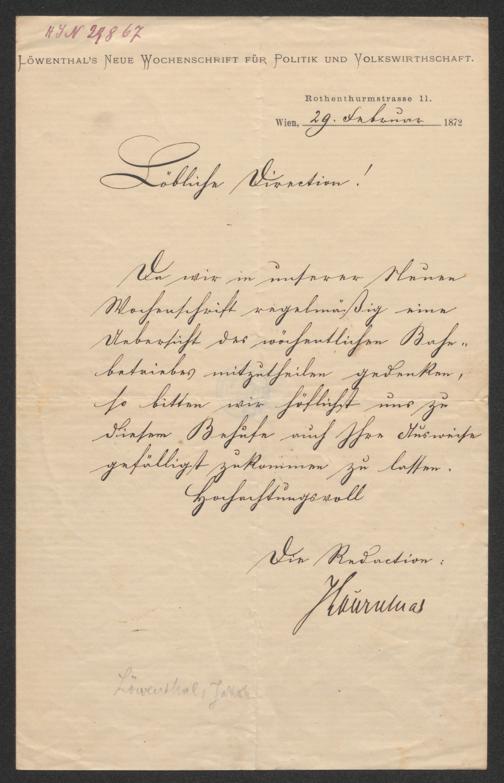 HJN 29867
LÖWENTHAL'S NEUE WOCHENSCHRIFT FÜR POLITIK UND VOLKSWIRTHSCHAFT.
Rothenthurmstrasse 11.
Wien, 29. Februar 1872
Löbliche Direction!
Da wir in unserer Neuen
Wochenschrift regelmäßig eine
Uebersicht des wöchentlichen Bahn-
betriebes mitzutheilen gedenken,
so bitten wir höflichst uns zu
diesem Behufe auch Ihre Ausweise
gefälligst zukommen zu lassen.
Hochachtungsvoll
Die Redaction:
Löwenthal, Jakob